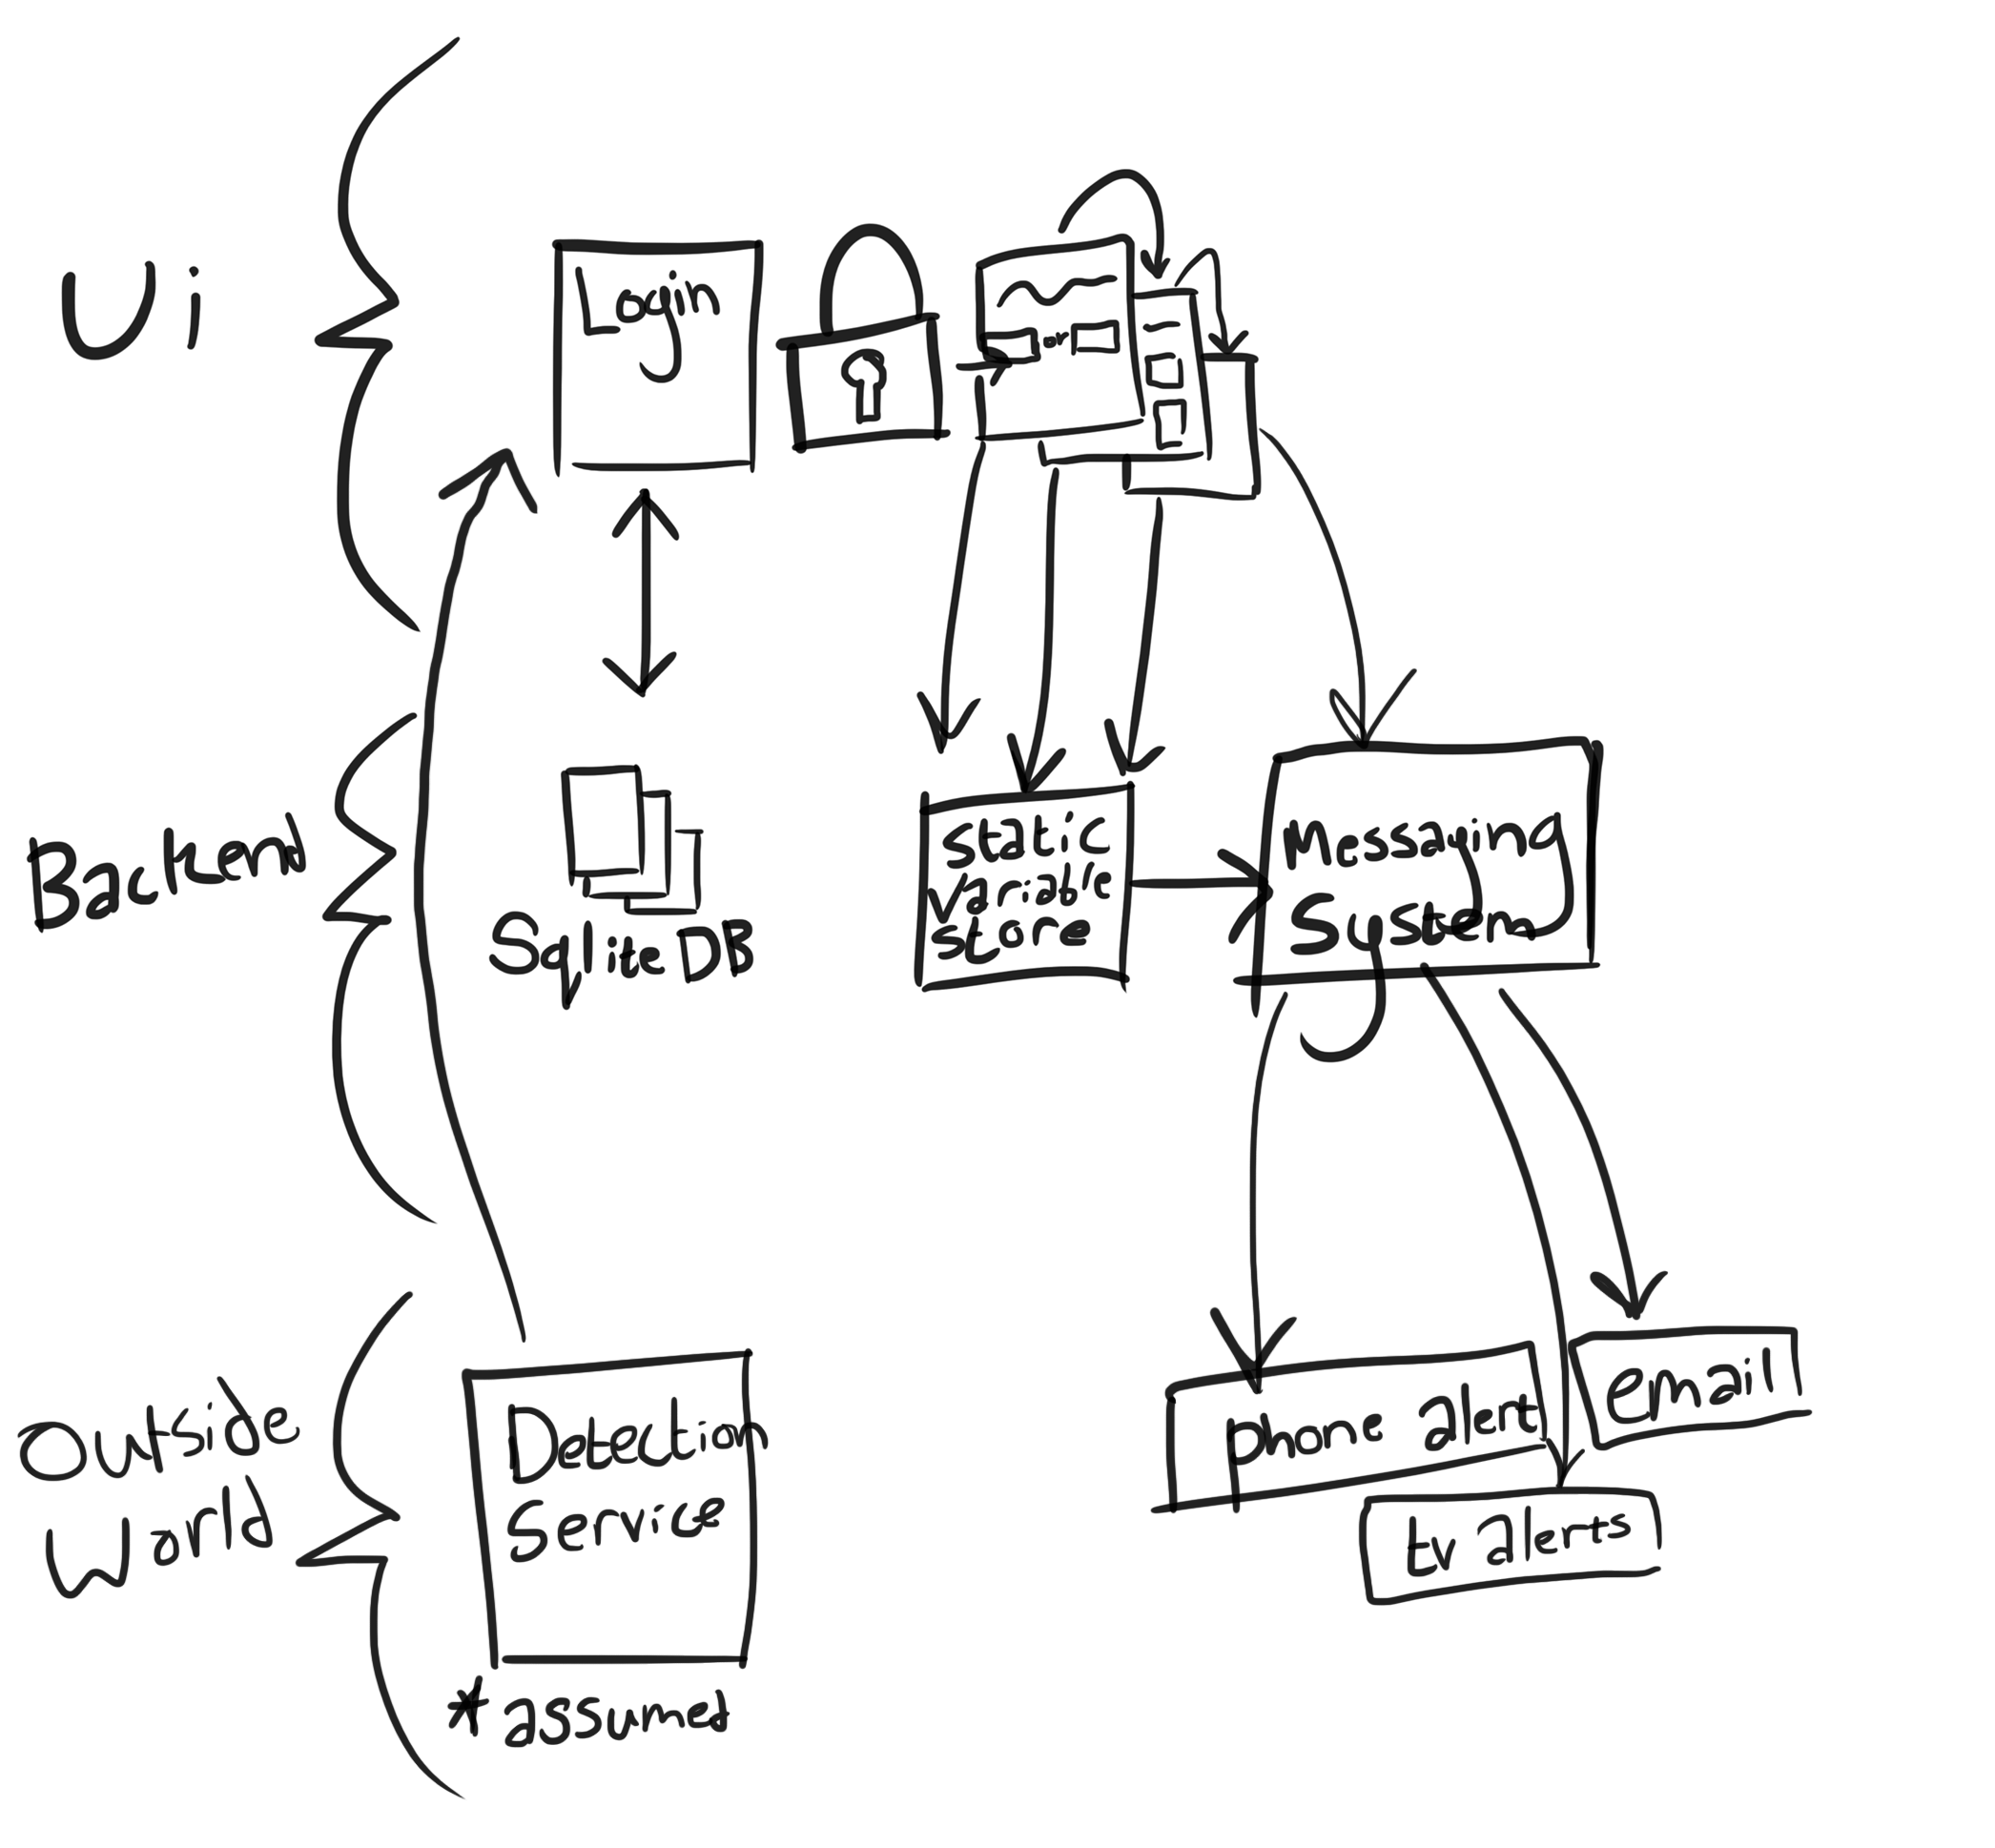 Ui
Login
or
Backend
Sqlite DB
static
variable
store
Messaging
System
Outside
World
Detection
Service
* assumed
phone alert
email
tv alerts